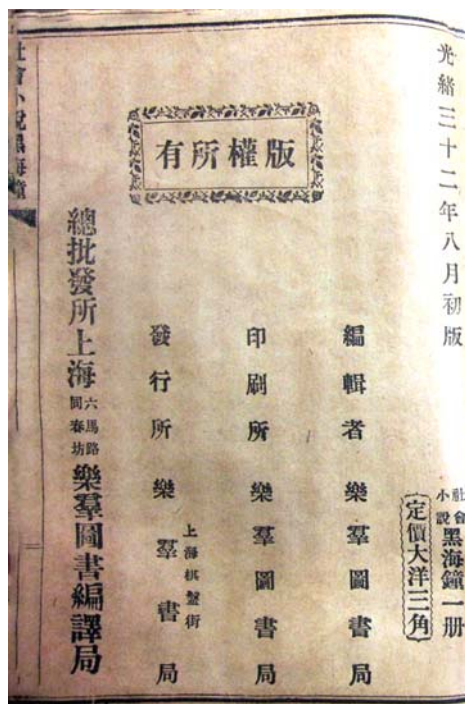 光緒三十二年八月初版
社會小說黑海鐘一册
定價大洋三角
版權所有
編輯者樂羣圖書局
印刷所樂羣圖書局
上海棋盤街
發行所樂羣書局
總批發所上海六馬路同春坊樂羣圖書編譯局
社會小說黑海鐘